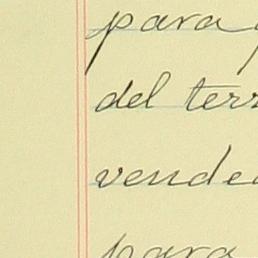 para
del terr
vended
para